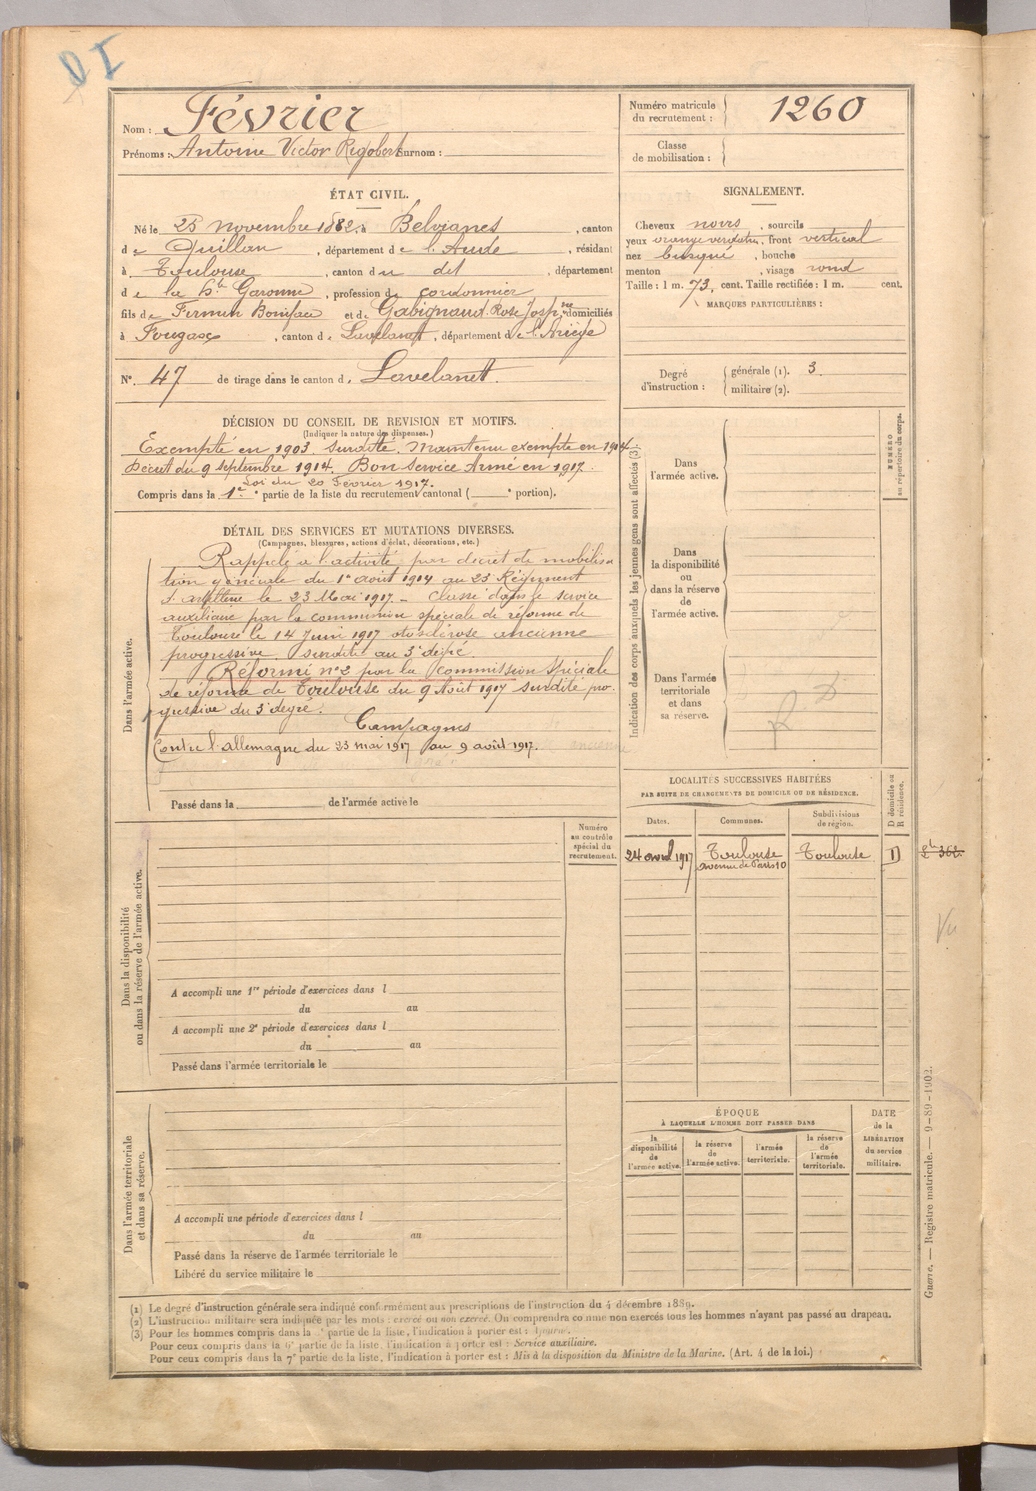 Nom : Février
Prénoms : Antoine Victor Rigobert Surnom :
ÉTAT CIVIL.
Né le 25 novembre 1882, à Belvianes, canton
de Quillan, département de l'Aude, résidant
à Toulouse, canton du dit, département
de la Hte Garonne, profession de cordonnier
fils de Firmin Boniface et de Gabignaud Rose Josphne domiciliés
à Fougax, canton de Lavelanet, département de l'Ariège
No. 47 de tirage dans le canton d. Lavelanet.
DÉCISION DU CONSEIL DE REVISION ET MOTIFS.
(Indiquer la nature des dispenses.)
Exempté en 1903. Surdité. Maintenu exempté en 1914.
Décret du 9 septembre 1914. Bon service Armé en 1917.
Loi du 20 Février 1917.
Compris dans la 1re partie de la liste du recrutement cantonal ( e portion).
DÉTAIL DES SERVICES ET MUTATIONS DIVERSES.
(Campagnes, blessures, actions d'éclat, décorations, etc.)
Dans l'armée active.
Rappelé à l'activité par décret de mobilisa
tion générale du 1er août 1914 au 23 Régiment
d'artillerie le 23 Mai 1917 - Classé dans le service
auxiliaire par la commission spéciale de réforme de
Toulouse le 14 Juin 1917 otosclérose ancienne
progressive. Surdité au 3e degré.
Réformé no 2 par la Commission Spéciale
de réforme de Toulouse du 9 Août 1917 surdité pro-
gressive du 3e degré.
Campagnes
Contre l'allemagne du 23 mai 1917 au 9 août 1917.
Passé dans la de l'armée active le
Numéro
au contrôle
spécial du
recrutement.
Dans la disponibilité
ou dans la réserve de l'armée active.
A accompli une 1re période d'exercices dans l
du au
A accompli une 2e période d'exercices dans l
du au
Passé dans l'armée territoriale le
Dans l'armée territoriale
et dans sa réserve.
A accompli une période d'exercices dans l
du au
Passé dans la réserve de l'armée territoriale le
Libéré du service militaire le
Numéro matricule
du recrutement : 1260
Classe
de mobilisation :
SIGNALEMENT.
Cheveux noirs, sourcils
yeux orangé verdâtre, front vertical
nez busqué, bouche
menton, visage rond
Taille : 1 m. 73, cent. Taille rectifiée : 1 m. cent.
MARQUES PARTICULIÈRES :
Degré
d'instruction :
générale (1). 3
militaire (2).
Indication des corps auxquels les jeunes gens sont affectés (3).
NUMÉRO
au répertoire du corps.
Dans
l'armée active.
Dans
la disponibilité
ou
dans la réserve
de
l'armée active.
Dans l'armée
territoriale
et dans
sa réserve.
LOCALITÉS SUCCESSIVES HABITÉES
PAR SUITE DE CHANGEMENTS DE DOMICILE OU DE RÉSIDENCE.
Dates. Communes. Subdivisions
de région.
D domicile ou
R résidence.
24 avril 1917 Toulouse Toulouse D
avenue de Paris 10
Vu
ÉPOQUE
À LAQUELLE L'HOMME DOIT PASSER DANS
la
disponibilité
de
l'armée active.
la réserve
de
l'armée active.
l'armée
territoriale.
la réserve
de
l'armée
territoriale.
DATE
de la
LIBÉRATION
du service
militaire.
Guerre. — Registre matricule. — 9-89-1902.
(1) Le degré d'instruction générale sera indiqué conformément aux prescriptions de l'instruction du 4 décembre 1889.
(2) L'instruction militaire sera indiquée par les mots : exercé ou non exercé. On comprendra comme non exercés tous les hommes n'ayant pas passé au drapeau.
(3) Pour les hommes compris dans la partie de la liste, l'indication à porter est :
Pour ceux compris dans la 6e partie de la liste, l'indication à porter est : Service auxiliaire.
Pour ceux compris dans la 7e partie de la liste, l'indication à porter est : Mis à la disposition du Ministre de la Marine. (Art. 4 de la loi.)